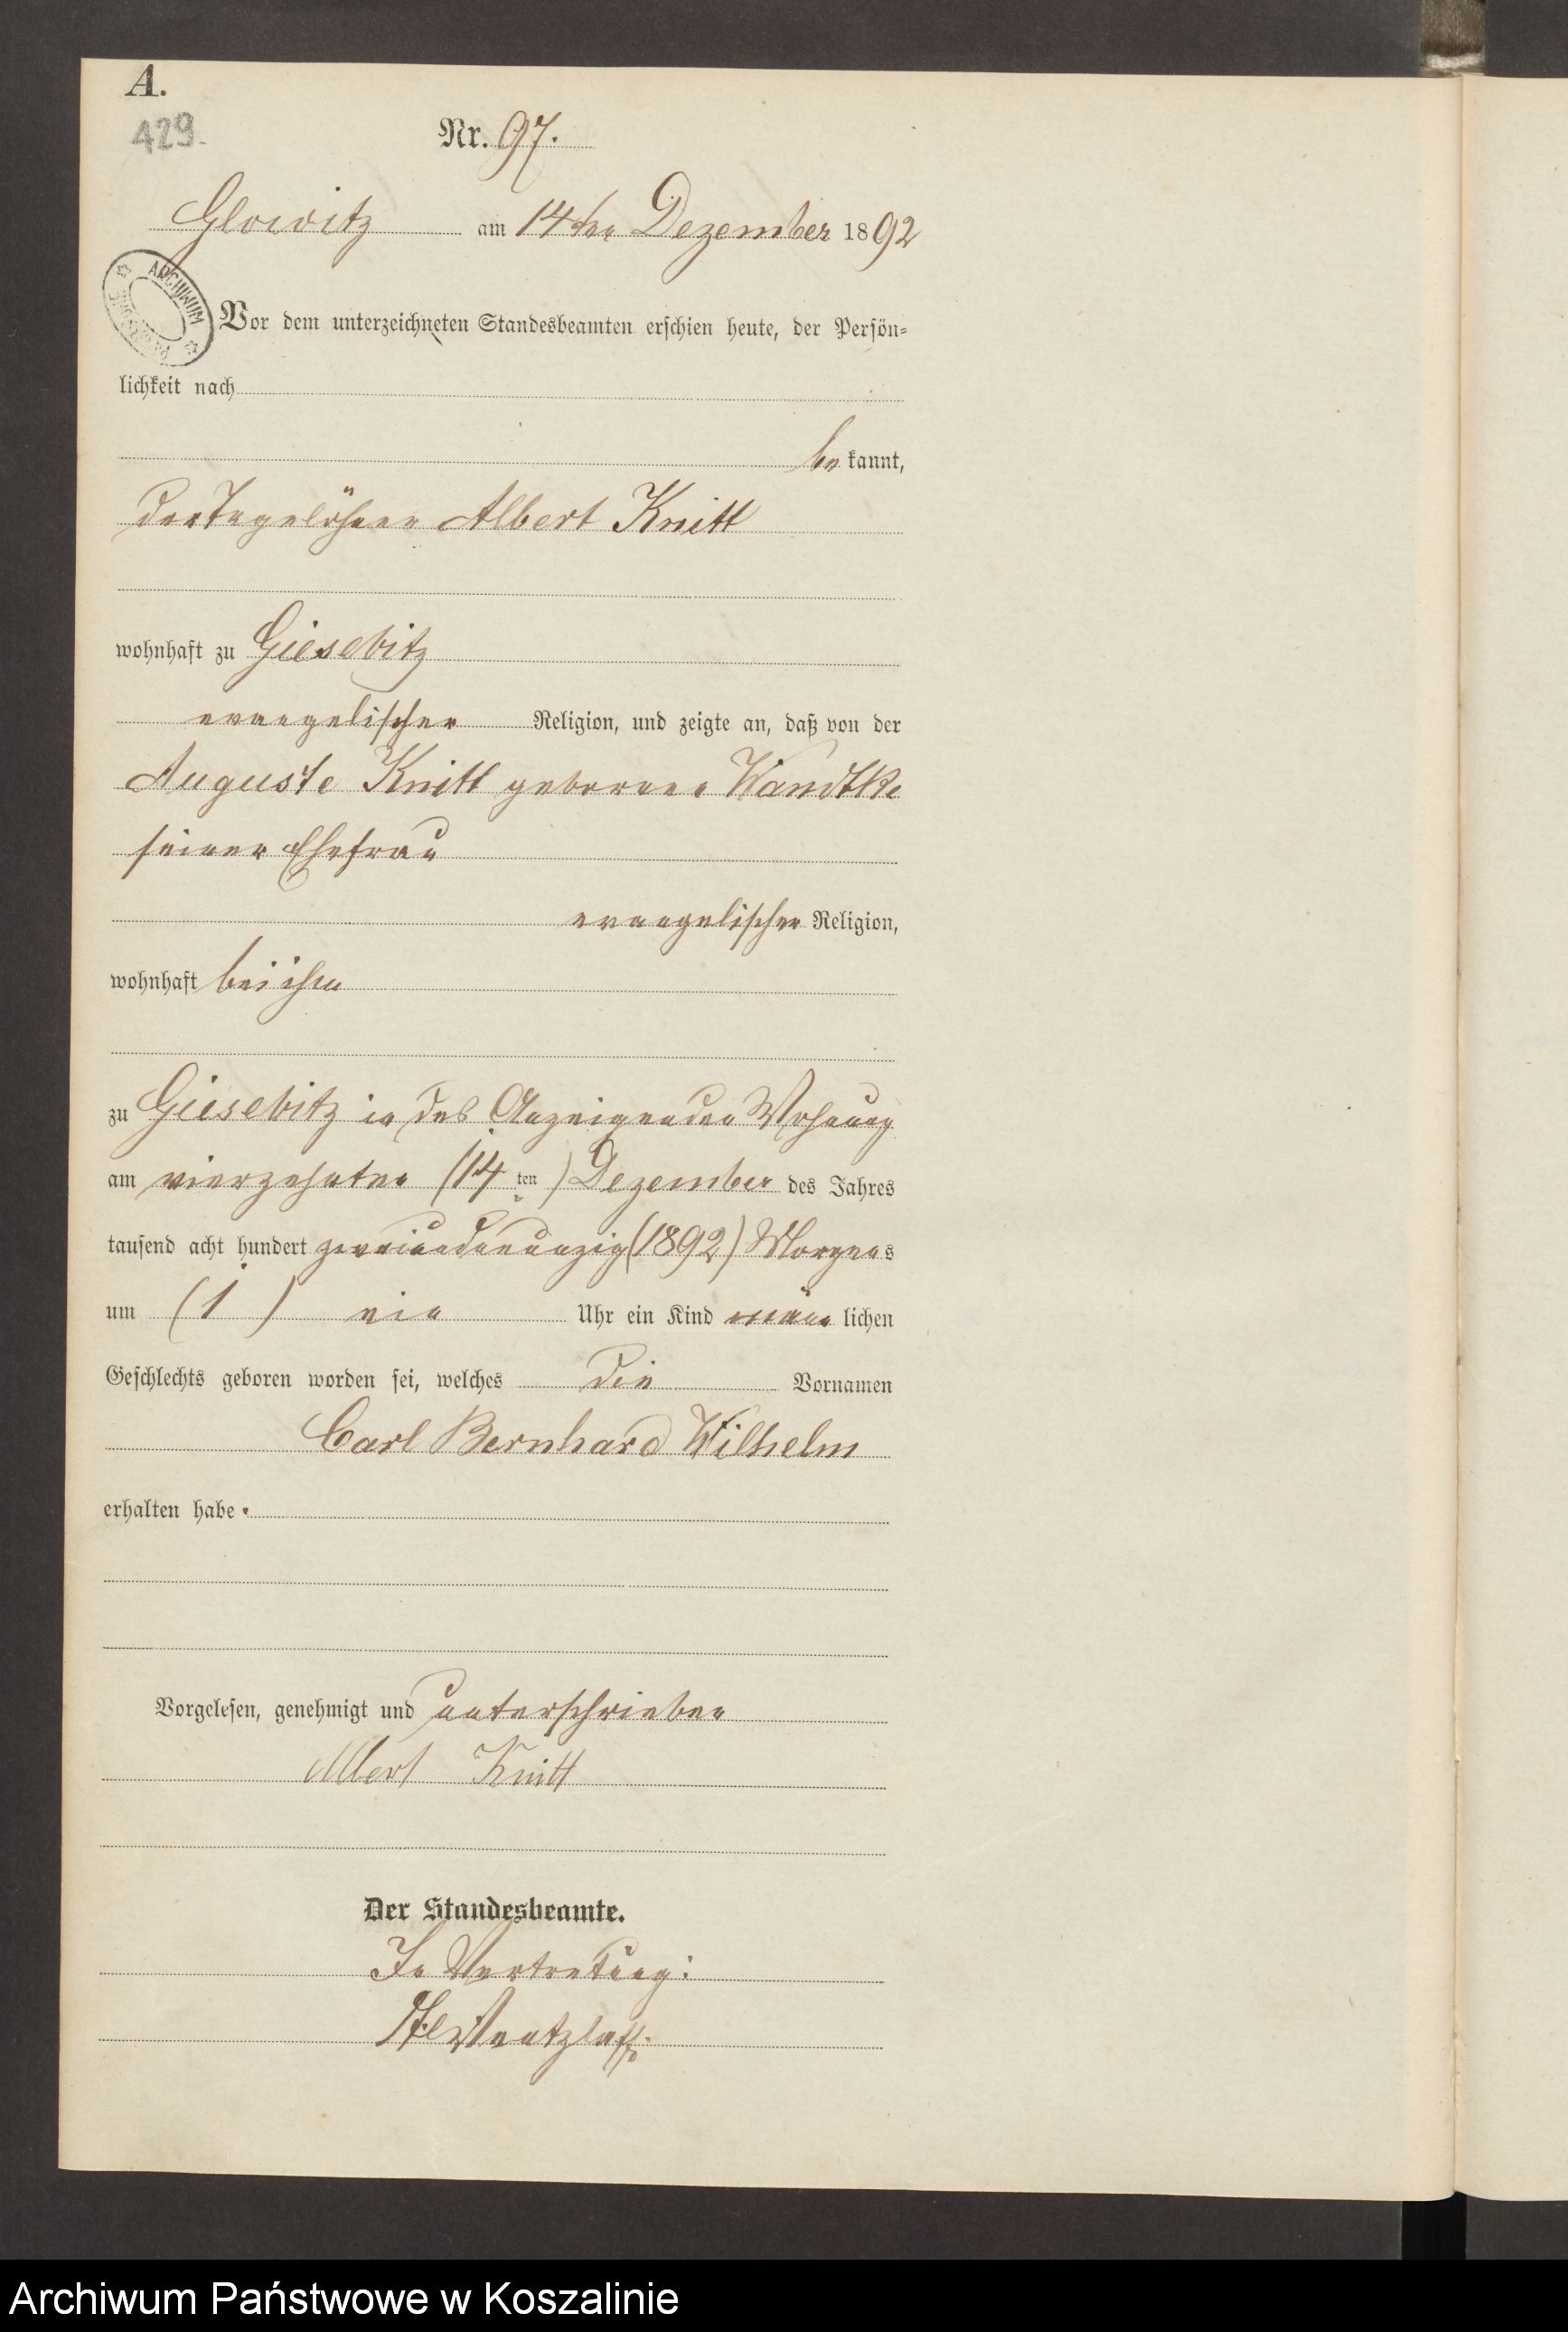 A.
429.
Nr. 97.
Glowitz am 14ten Dezember 1892
ARCHIWUM
Vor dem unterzeichneten Standesbeamten erschien heute, der Persön-
lichkeit nach
be kannt,
der Tagelöhner Albert Knitt
wohnhaft zu Giesebitz
evangelischer Religion, und zeigte an, daß von der
Auguste Knitt geborene Wandtke
seiner Ehefrau
evangelischer Religion,
wohnhaft bei ihm
zu Giesebitz in des Anzeigenden Wohnung
am vierzehnten (14 ten) Dezember des Jahres
tausend acht hundert zweiundneunzig (1892) Morgens
um (1) ein Uhr ein Kind männ lichen
Geschlechts geboren worden sei, welches die Vornamen
Carl Bernhard Wilhelm
erhalten habe.
Vorgelesen, genehmigt und unterschrieben
Albert Knitt
Der Standesbeamte.
In Vertretung:
Wentzlaff.
Archiwum Państwowe w Koszalinie